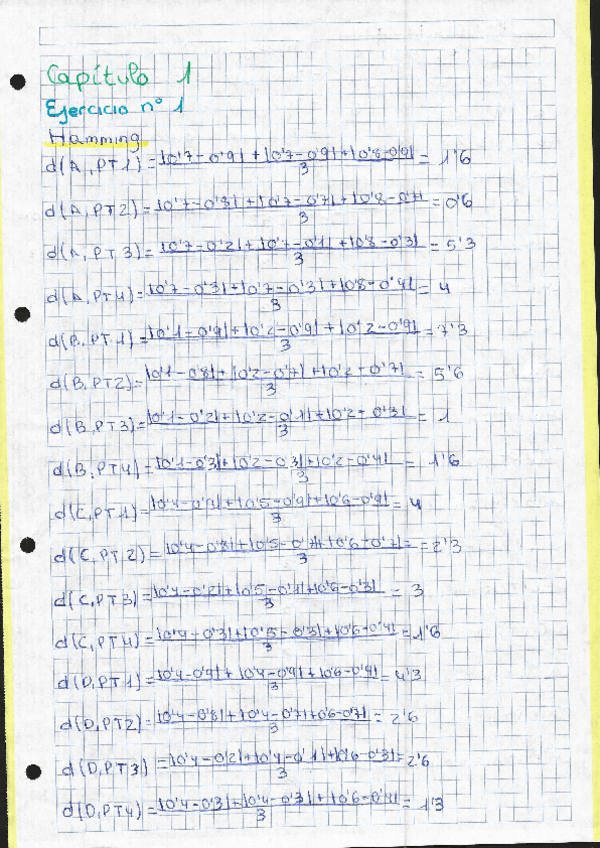 Capítulo 1
Ejercicio nº 1
Hamming
d(A, PT1) = |0'7-0'9| + |0'7-0'9| + |0'8-0'9| / 3 = 1'6
d(A, PT2) = |0'7-0'8| + |0'7-0'7| + |0'8-0'7| / 3 = 0'6
d(A, PT3) = |0'7-0'2| + |0'7-0'1| + |0'8-0'3| / 3 = 5'3
d(A, PT4) = |0'7-0'3| + |0'7-0'3| + |0'8-0'4| / 3 = 4
d(B, PT1) = |0'1-0'9| + |0'2-0'9| + |0'2-0'9| / 3 = 7'3
d(B, PT2) = |0'1-0'8| + |0'2-0'7| + |0'2-0'7| / 3 = 5'6
d(B, PT3) = |0'1-0'2| + |0'2-0'1| + |0'2-0'3| / 3 = 1
d(B, PT4) = |0'1-0'3| + |0'2-0'3| + |0'2-0'4| / 3 = 1'6
d(C, PT1) = |0'4-0'9| + |0'5-0'9| + |0'6-0'9| / 3 = 4
d(C, PT2) = |0'4-0'8| + |0'5-0'7| + |0'6-0'7| / 3 = = 2'3
d(C, PT3) = |0'4-0'2| + |0'5-0'1| + |0'6-0'3| / 3 = 3
d(C, PT4) = |0'4-0'3| + |0'5-0'3| + |0'6-0'4| / 3 = 1'6
d(D, PT1) = |0'4-0'9| + |0'4-0'9| + |0'6-0'9| / 3 = 4'3
d(D, PT2) = |0'4-0'8| + |0'4-0'7| + |0'6-0'7| / 3 = 2'6
d(D, PT3) = |0'4-0'2| + |0'4-0'1| + |0'6-0'3| / 3 = 2'6
d(D, PT4) = |0'4-0'3| + |0'4-0'3| + |0'6-0'4| / 3 = 1'3